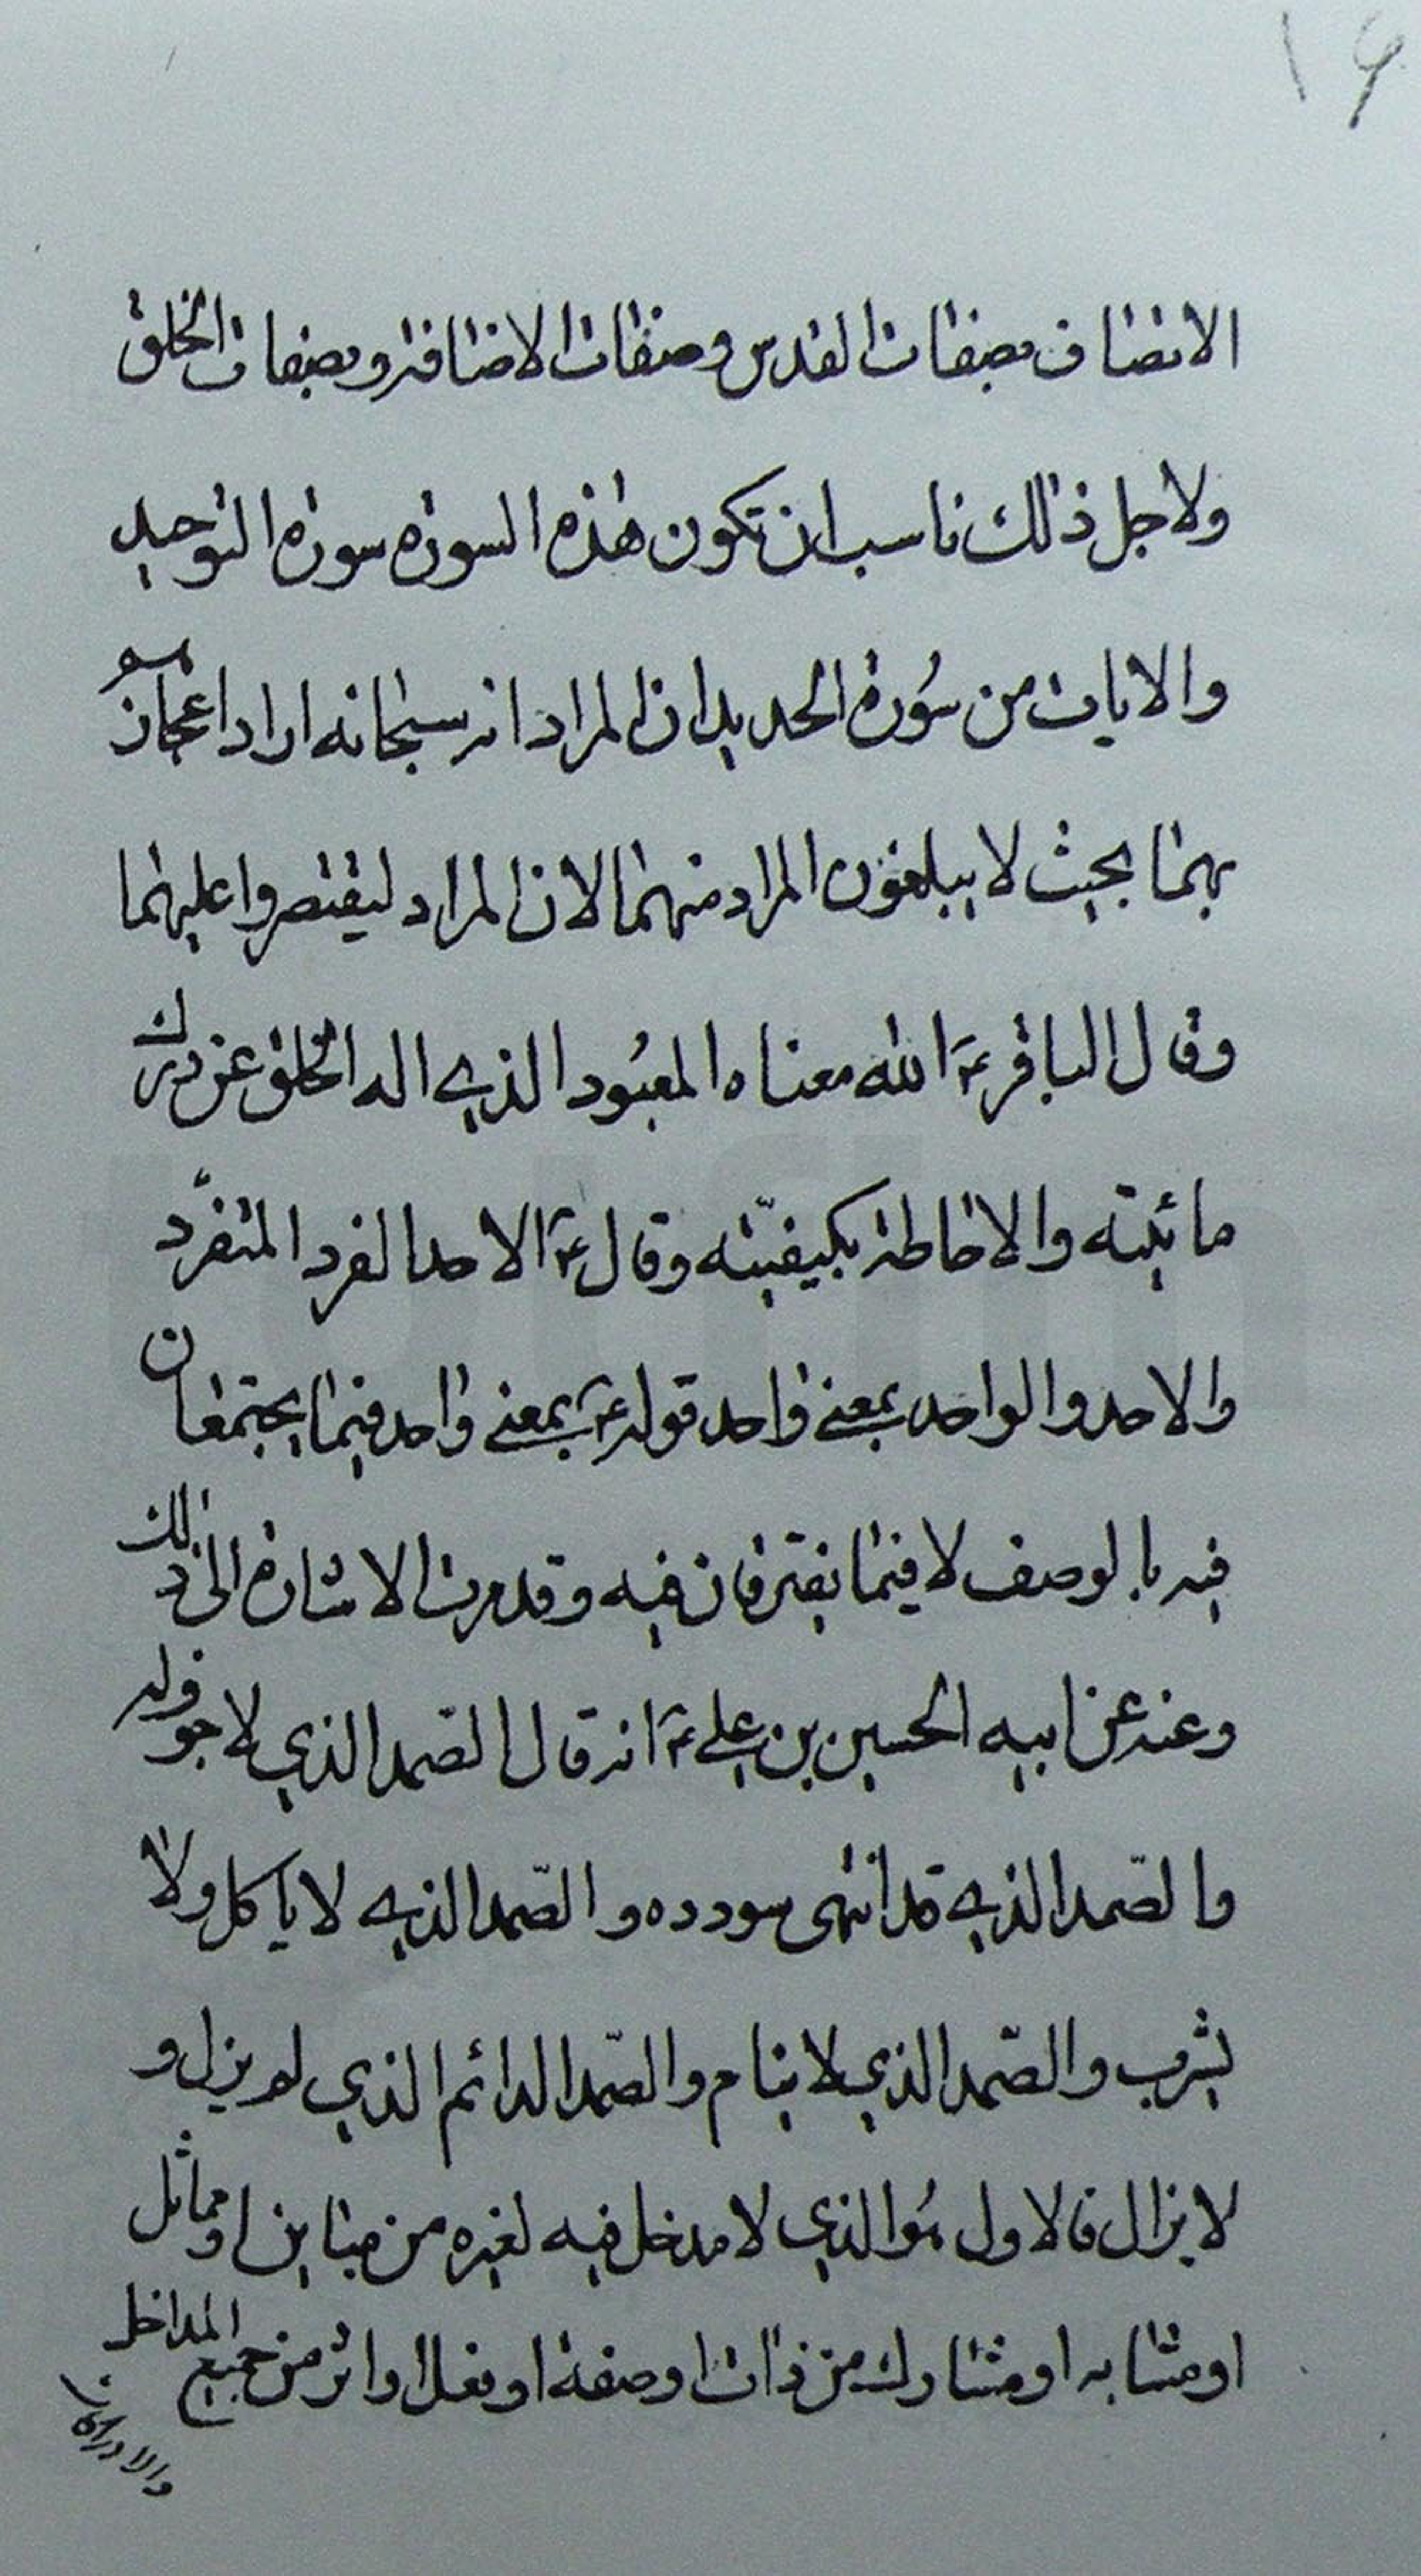 ١٦
الاتصاف بصفات القدس وصفات الاضافة وبصفات الخلق
ولاجل ذلك ناسب ان تكون هذه السورة سورة التوحيد
والايات من سورة الحديد ان المراد انه سبحانه اراد اعجاز
بهما بحيث لا يبلغون المراد منهما لا ان المراد ليقتصروا عليهما
وقال الباقر ع الله معناه المعبود الذي اله الخلق عن درك
مائيته والاحاطة بكيفيّته وقال ع الاحد الفرد المتفرّد
والاحد والواحد بمعنى واحد قوله ع بمعنى واحد فيما يجتمعان
فيه بالوصف لا فيما يفترقان فيه وقد مرت الاشارة الى ذلك
وعنه عن ابيه الحسين بن علي ع انه قال الصّمد الذي لا جوف له
والصّمد الذي قد انتهى سودده والصّمد الذي لا ياكل ولا
يشرب والصّمد الذي لا ينام والصّمد الدائم الذي لم يزل و
لا يزال فالاول هو الذي لا مدخل فيه لغيره من مباين او مماثل
او مشابه او مشارك من ذات او صفة او فعل او اثر من جميع المداخل
والادراكات